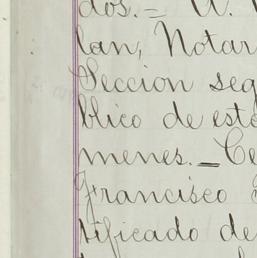 dos. = A.
lan, Notar
Seccion seg
blico de esto
menes. = Ce
Francisco
tificado de